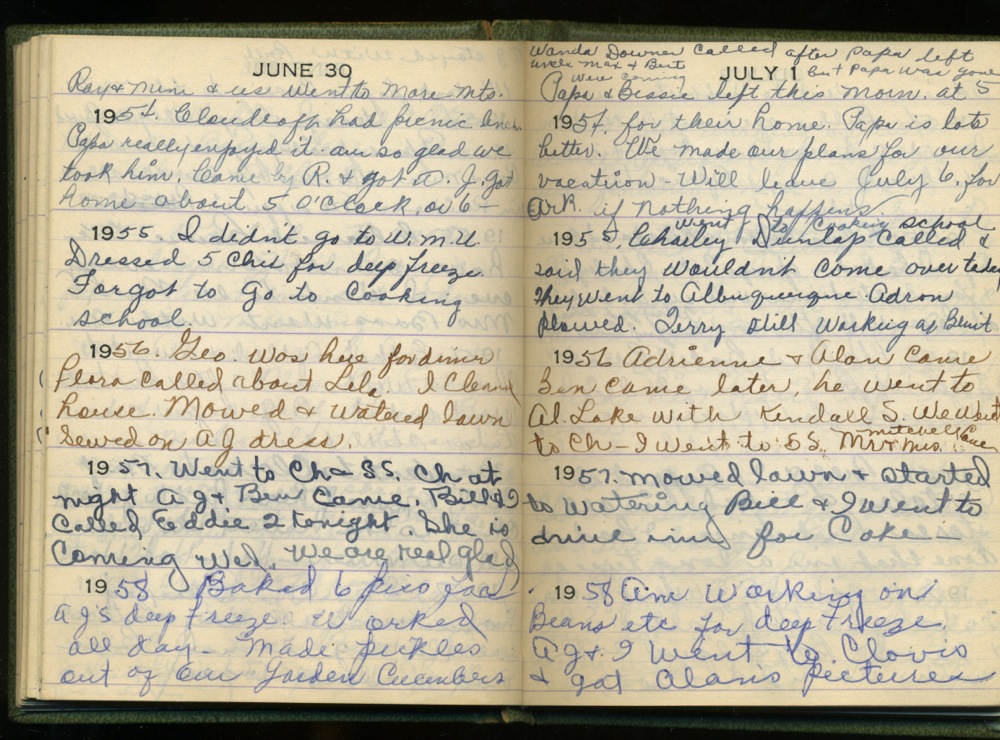 JUNE 30
Ray & Mim & us went to More Mts.
1954. Cloudcoft had picnic lunch.
Papa really enjoyd it. am so glad we
took him. Came by R. & got A. J. got
home about 5 O'Clock, or 6 -
1955. I didn't go to W.M.U.
Dressed 5 Chix for deep freeze.
Forgot to go to Cooking
school.
1956. Geo. was here for dinner
Flora called about Lela. I Cleand
house. Mowed & Watered lawn
Sewed on AJ dress.
1957. Went to Ch & SS. Ch at
night AJ & Ben Came. Bill & I
Called Eddie 2 tonight. She is
Coming Wed. We are real glad
1958 Baked 6 pies for
AJ's deep freeze. Worked
all day - Made pickles
out of our Garden Cucumbers
Wanda Downer Called after Papa left
Uncle Max & Bert
were coming but Papa was gone
JULY 1
Papa & Bessie left this morn. at 5
1954. for their home. Papa is lots
better. We made our plans for our
vacation - Will leave July 6, for
Ark. if nothing happens
went to Cooking school
1955, Charley Dunlap Called &
said they wouldn't come over today
they went to Albuquerque. Adron
plowed. Jerry still working at Benit
1956 Adrienne & Alan Came
Ben came later, he went to
Al. Lake with Kendall S. We Went
to Ch - I went to SS. Mr & Mrs. Mitchell Came
1957. Mowed lawn & started
to watering Bill & I went to
drive inn for Coke -
1958 Am Working on
Beans etc for deep freeze.
AJ & I went to Clovis
& got Alan's Pictures